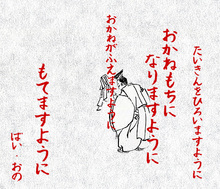 たいきんをひろいますように
おかねもちに
なりますように
おかねがふえますように
もてますように
はい・おの